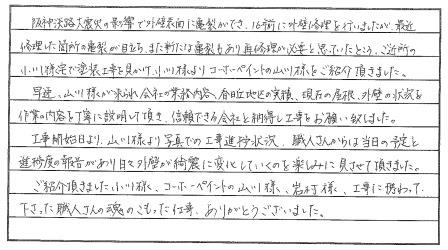 阪神淡路大震災の影響で外壁表面に亀裂ができ、16年前に外壁修理を行いましたが、最近
修理した箇所の亀裂が目立ち、また新たな亀裂もあり再修理が必要と思っていたところ、ご近所の
小川様宅で塗装工事を見かけ、小川様よりコーホーペイントの山川様をご紹介頂きました。
早速、山川様が来られ会社の業務内容、春日地区の実績、現在の屋根、外壁の状況を
作業の内容を丁寧に説明して頂き、信頼できる会社と納得し工事をお願い致しました。
工事開始日より、山川様より写真での工事進捗状況、職人さんからは当日の予定と
進捗度の報告があり日々外壁が綺麗に変化していくのを楽しみに見させて頂きました。
ご紹介頂きました小川様、コーホーペイントの山川様、岩村様、工事に携わって
下さった職人さんの魂のこもった仕事、ありがとうございました。